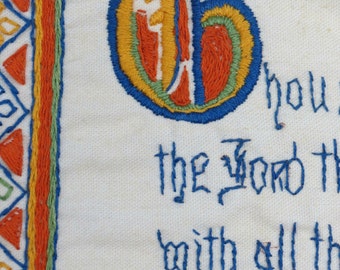 Thou
the Lord th
with all th